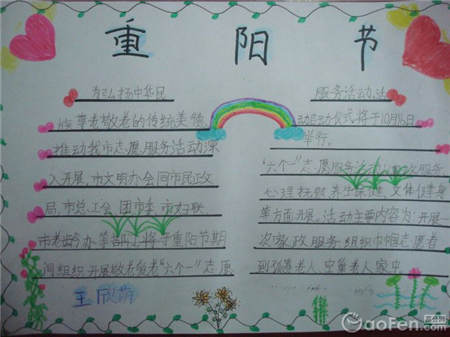 重阳节
为弘扬中华民
族尊老敬老的传统美德
推动我市志愿服务活动深
入开展，市文明办会同市民政
局，市总工会 团市委，市妇联
市老龄办等部门将于重阳节期
间组织开展敬老爱老“六个一”志愿
服务活动，活
动启动仪式将于10月15日
举行。
“六个一”志愿服务活动
心理抚慰，养生保健，文体健身
等方面开展。活动主要内容为：开展一
次家政服务组织巾帼志愿者
到孤寡老人，空巢老人家中
王欣
aoFen.com